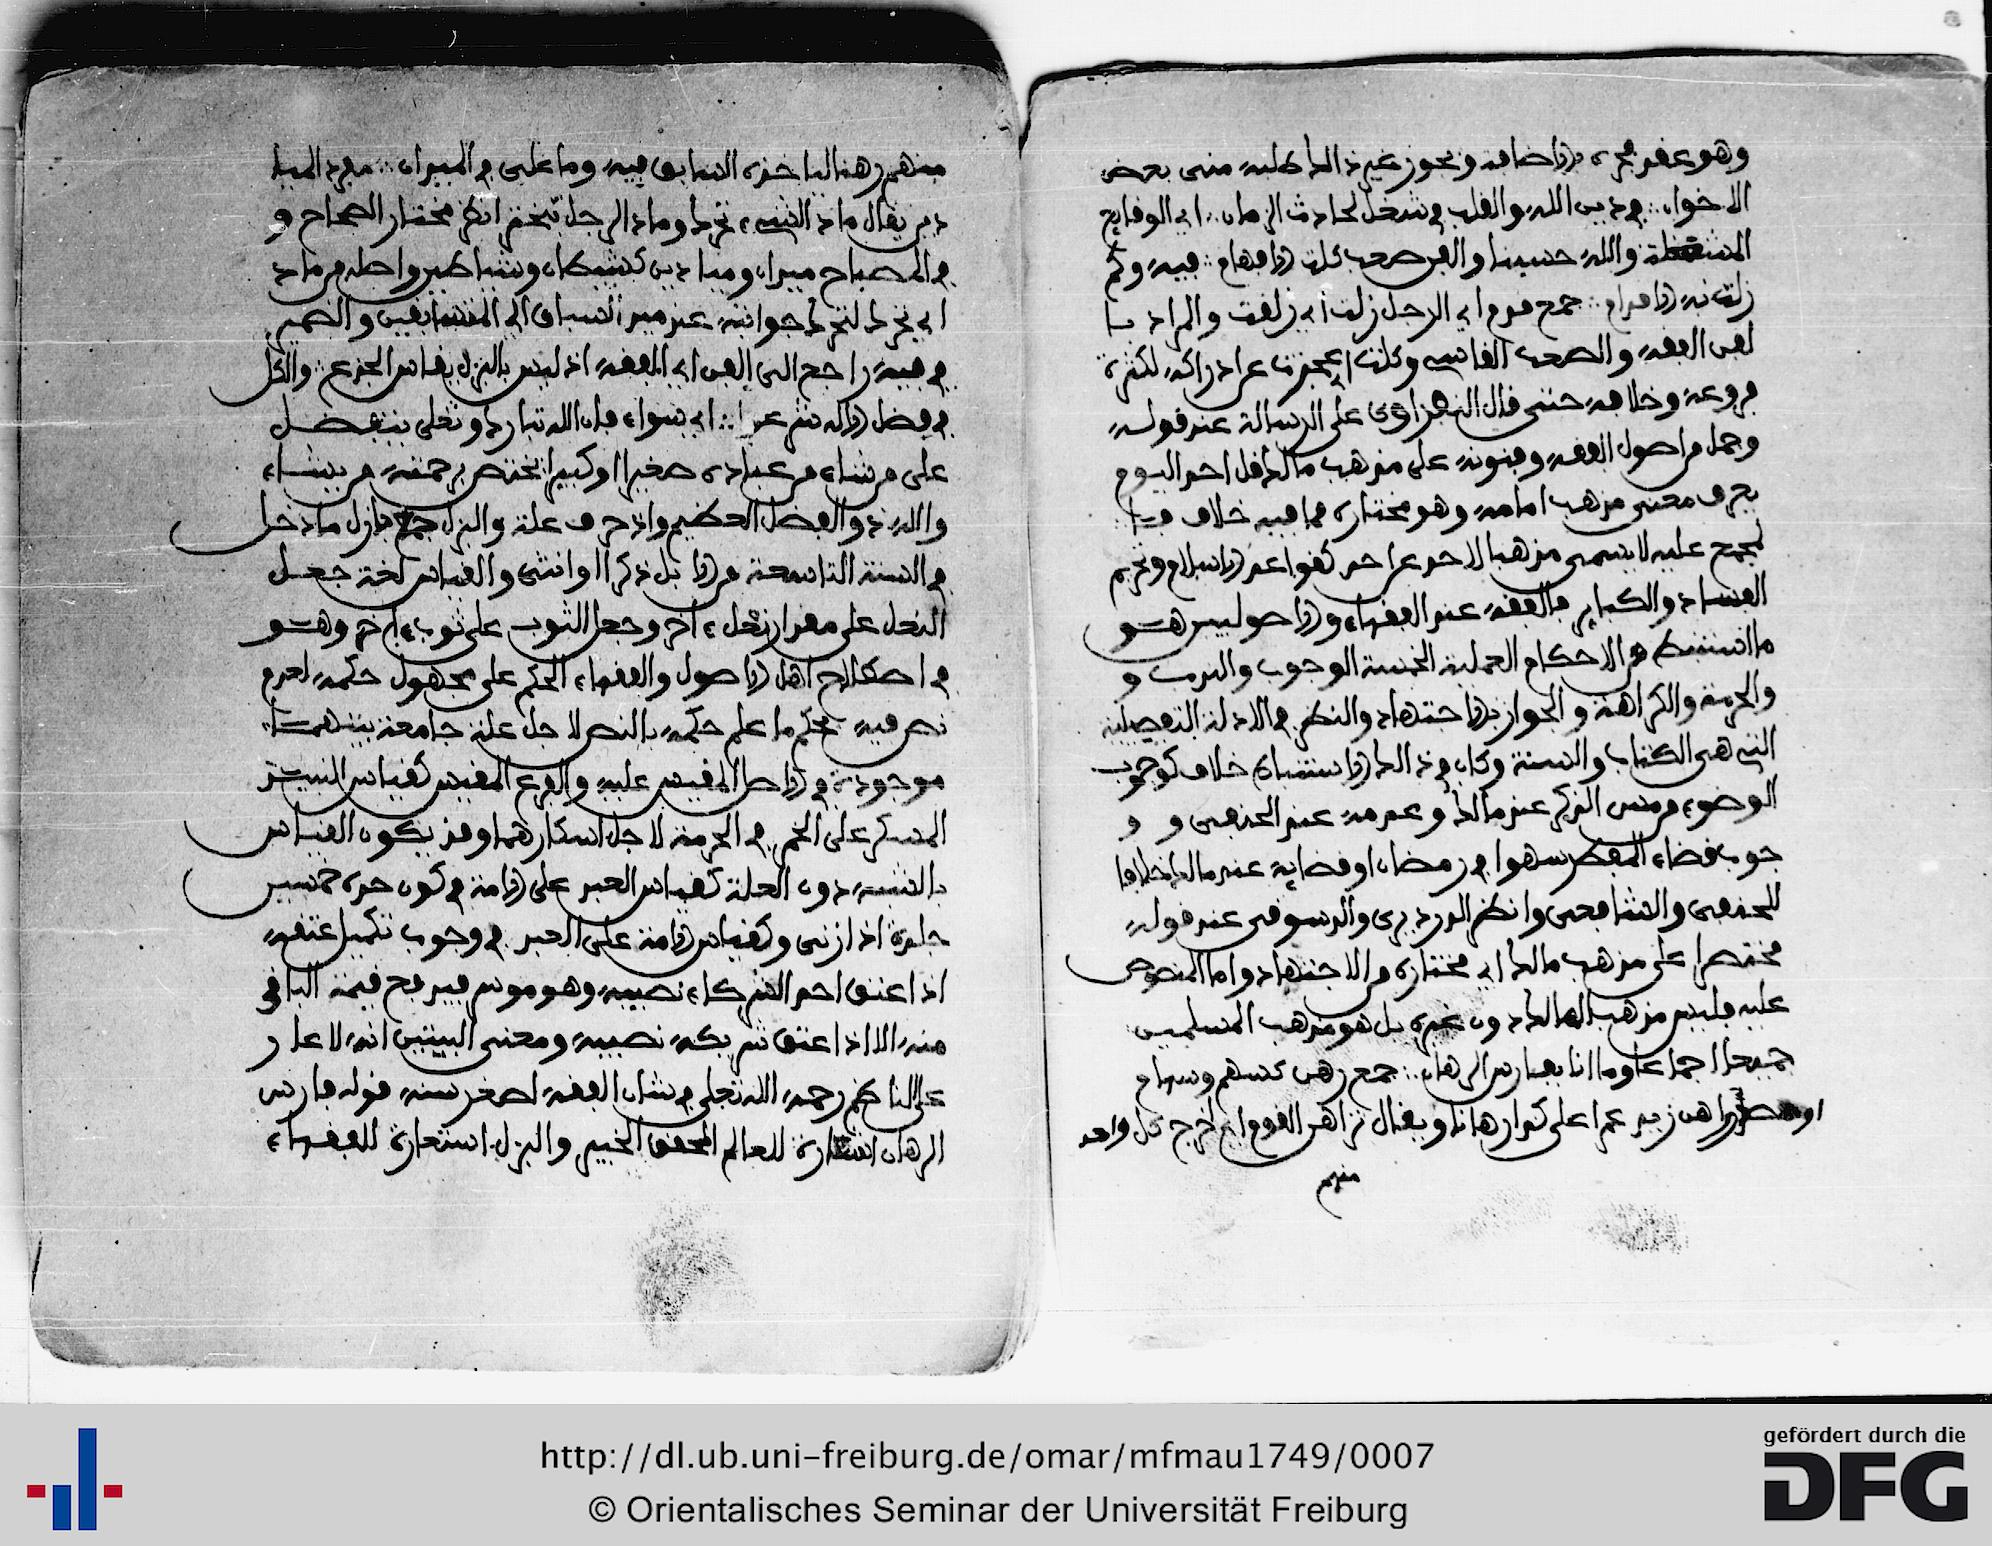 وهو عقد مجرد بالاضافة ويجوز غير ذلك طلبه منى بعض
الاخوان ∴ في دين الله والقلب في شغل لحادث الزمان ∴ اي الوقايع
المشغلة والله حسبنا والفن صعب كلت الافهام ∴ فيه وكم
زلت به الاقدام ∴ جمع قدم اي الرجل زلت اي زلفت والمراد با
لفن الفقه والصعب القاسي وكلت اي عجزت عن ادراكه لكثرة
فروعه وخلافه حتى قال النفراوي على الرسالة عند قوله
وجمل من اصول الفقه وفنونه على مذهب مالك قل احد اليوم
يعرف معنى مذهب امامه وهو مختاره مما فيه خلاف فما
اجمع عليه لا يسمى مذهبا لاحد عن احد كقواعد الاسلام وتحريم
الفساد والكباير فالفقه عند الفقهاء والاصوليين هو
ما استنبط من الاحكام العملية الخمسة الوجوب والندب و
والحرمة والكراهة والجواز بالاجتهاد والنظر في الادلة التفصيلية
التي هي الكتاب والسنة وكان في ذلك الاستنباط خلاف كوجوب
الوضوء من مس الذكر عند مالك وعدمه عند الحنفي و و
جوب قضاء المفطر سهوا في رمضان او قضايه عند مالك خلافا
للحنفي والشافعي وانظر الدردير والدسوقي عند قوله
مختصرا على مذهب مالك اي مختاره من الاجتهاد واما المنصوص
عليه فليس مذهب المالك دون غيره بل هو مذهب المسلمين
جميعا اجماعا وما انا بفارس الرهان ∴ جمع رهن كسهم وسهام
او مصدر راهن زيد عمرا على كذا رهانا ويقال تراهن القوم اي اخرج كل واحد
منهم
منهم رهنا لياخذه السابق فيه وما على في الميدان ∴ مفرد الميا
دين يقال ماد الشيء تحرك وماد الرجل تبختر انظر مختار الصحاح و
في المصباح ميدان وميادين كشيطان وشياطين واصله من ماد
اي تحرك لتحرك جوانبه عند ميد السباق اي المتسابقين والضمير
في فيه راجع الى الفن اي الفقه اذ ليس بالبزل يقاس الجذع ∴ والكل
في فضل الاله شرع ∴ اي سواء فان الله تبارك وتعلى يتفضل
على من يشاء من عباده صغيرا او كبيرا يختص برحمته من يشاء
والله ذو الفضل العظيم واذ حرف علة والبزل جمع بازل ما دخل
في السنة التاسعة من الابل ذكرا او انثى والقياس لغة جعل
النعل على مقدار نعل اخر وجعل الثوب على ثوب اخر وهو
في اصطلاح اهل الاصول والفقهاء الحكم على مجهول حكمه لعدم
نص فيه بحكم ما علم حكمه بالنص لاجل علة جامعة بينهما
موجودة في الاصل المقيس عليه والفرع المقيس كقياس النبيذ
المسكر على الخمر في الحرمة لاجل اسكارهما وقد يكون القياس
بالشبه دون العلة كقياس العبد على الامة في كون حده خمسين
جلدة اذا زنى وكقياس الامة على العبد في وجوب تكميل عتقه
اذا اعتق احد الشركاء نصيبه وهو موسر فيدفع قيمة الباقي
منه الا اذا اعتق شريكه نصيبه ومعنى البيتين انه لا عار
على الناظم رحمه الله تعلى في شان الفقه لصغر سنه قوله فارس
الرهان استعارة للعالم المحقق الخبير والبزل استعارة للفقهاء
http://dl.ub.uni-freiburg.de/omar/mfmau1749/0007
© Orientalisches Seminar der Universität Freiburg
gefördert durch die
DFG